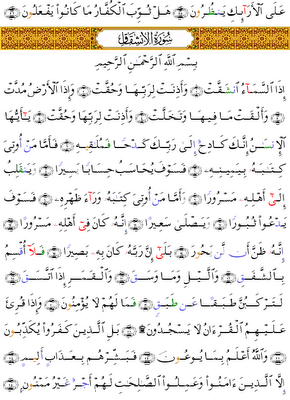 عَلَى ٱلْأَرَآئِكِ يَنظُرُونَ ۝ هَلْ ثُوِّبَ ٱلْكُفَّارُ مَا كَانُوا۟ يَفْعَلُونَ ۝
سُورَةُ الانْشِقَاقِ
بِسْمِ ٱللَّهِ ٱلرَّحْمَـٰنِ ٱلرَّحِيمِ
إِذَا ٱلسَّمَآءُ ٱنشَقَّتْ ۝ وَأَذِنَتْ لِرَبِّهَا وَحُقَّتْ ۝ وَإِذَا ٱلْأَرْضُ مُدَّتْ
۝ وَأَلْقَتْ مَا فِيهَا وَتَخَلَّتْ ۝ وَأَذِنَتْ لِرَبِّهَا وَحُقَّتْ ۝ يَـٰٓأَيُّهَا
ٱلْإِنسَـٰنُ إِنَّكَ كَادِحٌ إِلَىٰ رَبِّكَ كَدْحًا فَمُلَـٰقِيهِ ۝ فَأَمَّا مَنْ أُوتِىَ
كِتَـٰبَهُۥ بِيَمِينِهِۦ ۝ فَسَوْفَ يُحَاسَبُ حِسَابًا يَسِيرًا ۝ وَيَنقَلِبُ
إِلَىٰٓ أَهْلِهِۦ مَسْرُورًا ۝ وَأَمَّا مَنْ أُوتِىَ كِتَـٰبَهُۥ وَرَآءَ ظَهْرِهِۦ ۝ فَسَوْفَ
يَدْعُوا۟ ثُبُورًا ۝ وَيَصْلَىٰ سَعِيرًا ۝ إِنَّهُۥ كَانَ فِىٓ أَهْلِهِۦ مَسْرُورًا ۝
إِنَّهُۥ ظَنَّ أَن لَّن يَحُورَ ۝ بَلَىٰٓ إِنَّ رَبَّهُۥ كَانَ بِهِۦ بَصِيرًا ۝ فَلَآ أُقْسِمُ
بِٱلشَّفَقِ ۝ وَٱلَّيْلِ وَمَا وَسَقَ ۝ وَٱلْقَمَرِ إِذَا ٱتَّسَقَ ۝
لَتَرْكَبُنَّ طَبَقًا عَن طَبَقٍ ۝ فَمَا لَهُمْ لَا يُؤْمِنُونَ ۝ وَإِذَا قُرِئَ
عَلَيْهِمُ ٱلْقُرْءَانُ لَا يَسْجُدُونَ ۩ ۝ بَلِ ٱلَّذِينَ كَفَرُوا۟ يُكَذِّبُونَ
۝ وَٱللَّهُ أَعْلَمُ بِمَا يُوعُونَ ۝ فَبَشِّرْهُم بِعَذَابٍ أَلِيمٍ ۝
إِلَّا ٱلَّذِينَ ءَامَنُوا۟ وَعَمِلُوا۟ ٱلصَّـٰلِحَـٰتِ لَهُمْ أَجْرٌ غَيْرُ مَمْنُونٍۭ ۝